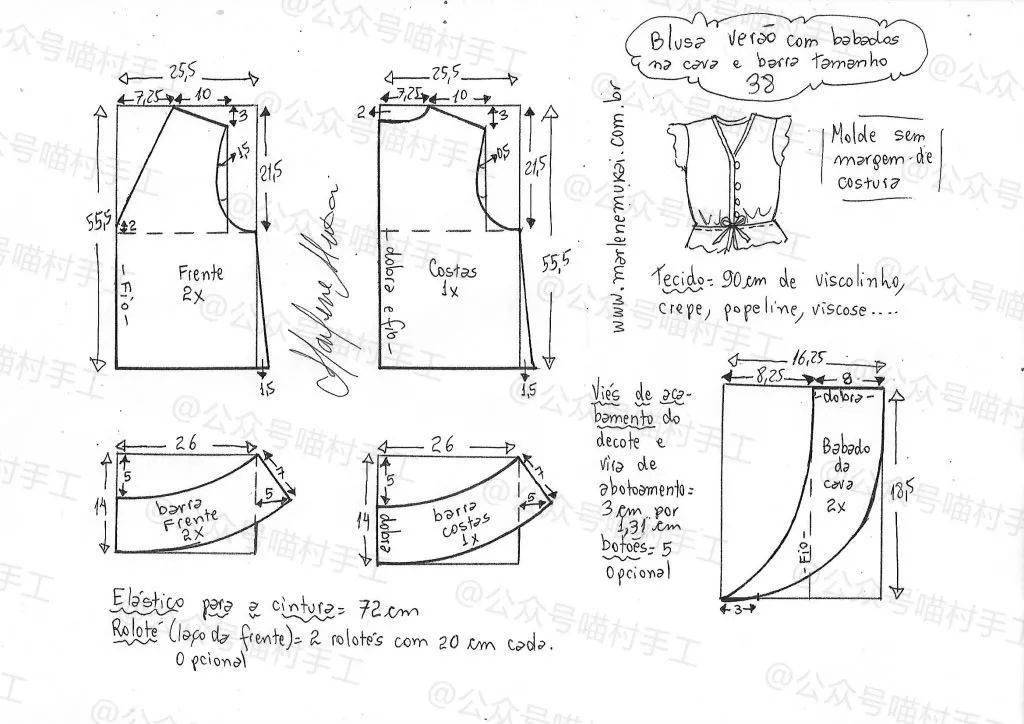 Blusa verão com babados
na cava e barra tamanho
38
www.marlenemukai.com.br
Molde sem
margem de
costura
Tecido= 90cm de viscolinho,
crepe, popeline, viscose....
25,5
7,25
10
3
1,5
21,5
55,5
2
Frente
2x
-Fio-
1,5
25,5
7,25
10
2
3
0,5
21,5
55,5
Costas
1x
-dobra e fio-
1,5
26
14
5
7
5
barra
Frente
2x
26
14
5
7
5
barra
costas
1x
dobra
Elástico para a cintura= 72cm
Roloté (laço da frente)= 2 rolotés com 20 cm cada.
Opcional
Viés de aca-
bamento do
decote e
vira de
abotoamento=
3 cm por
1,31 cm
botões= 5
Opcional
16,25
8,25
8
-dobra-
Babado
da
cava
2x
-Fio-
18,5
3
@公众号喵村手工